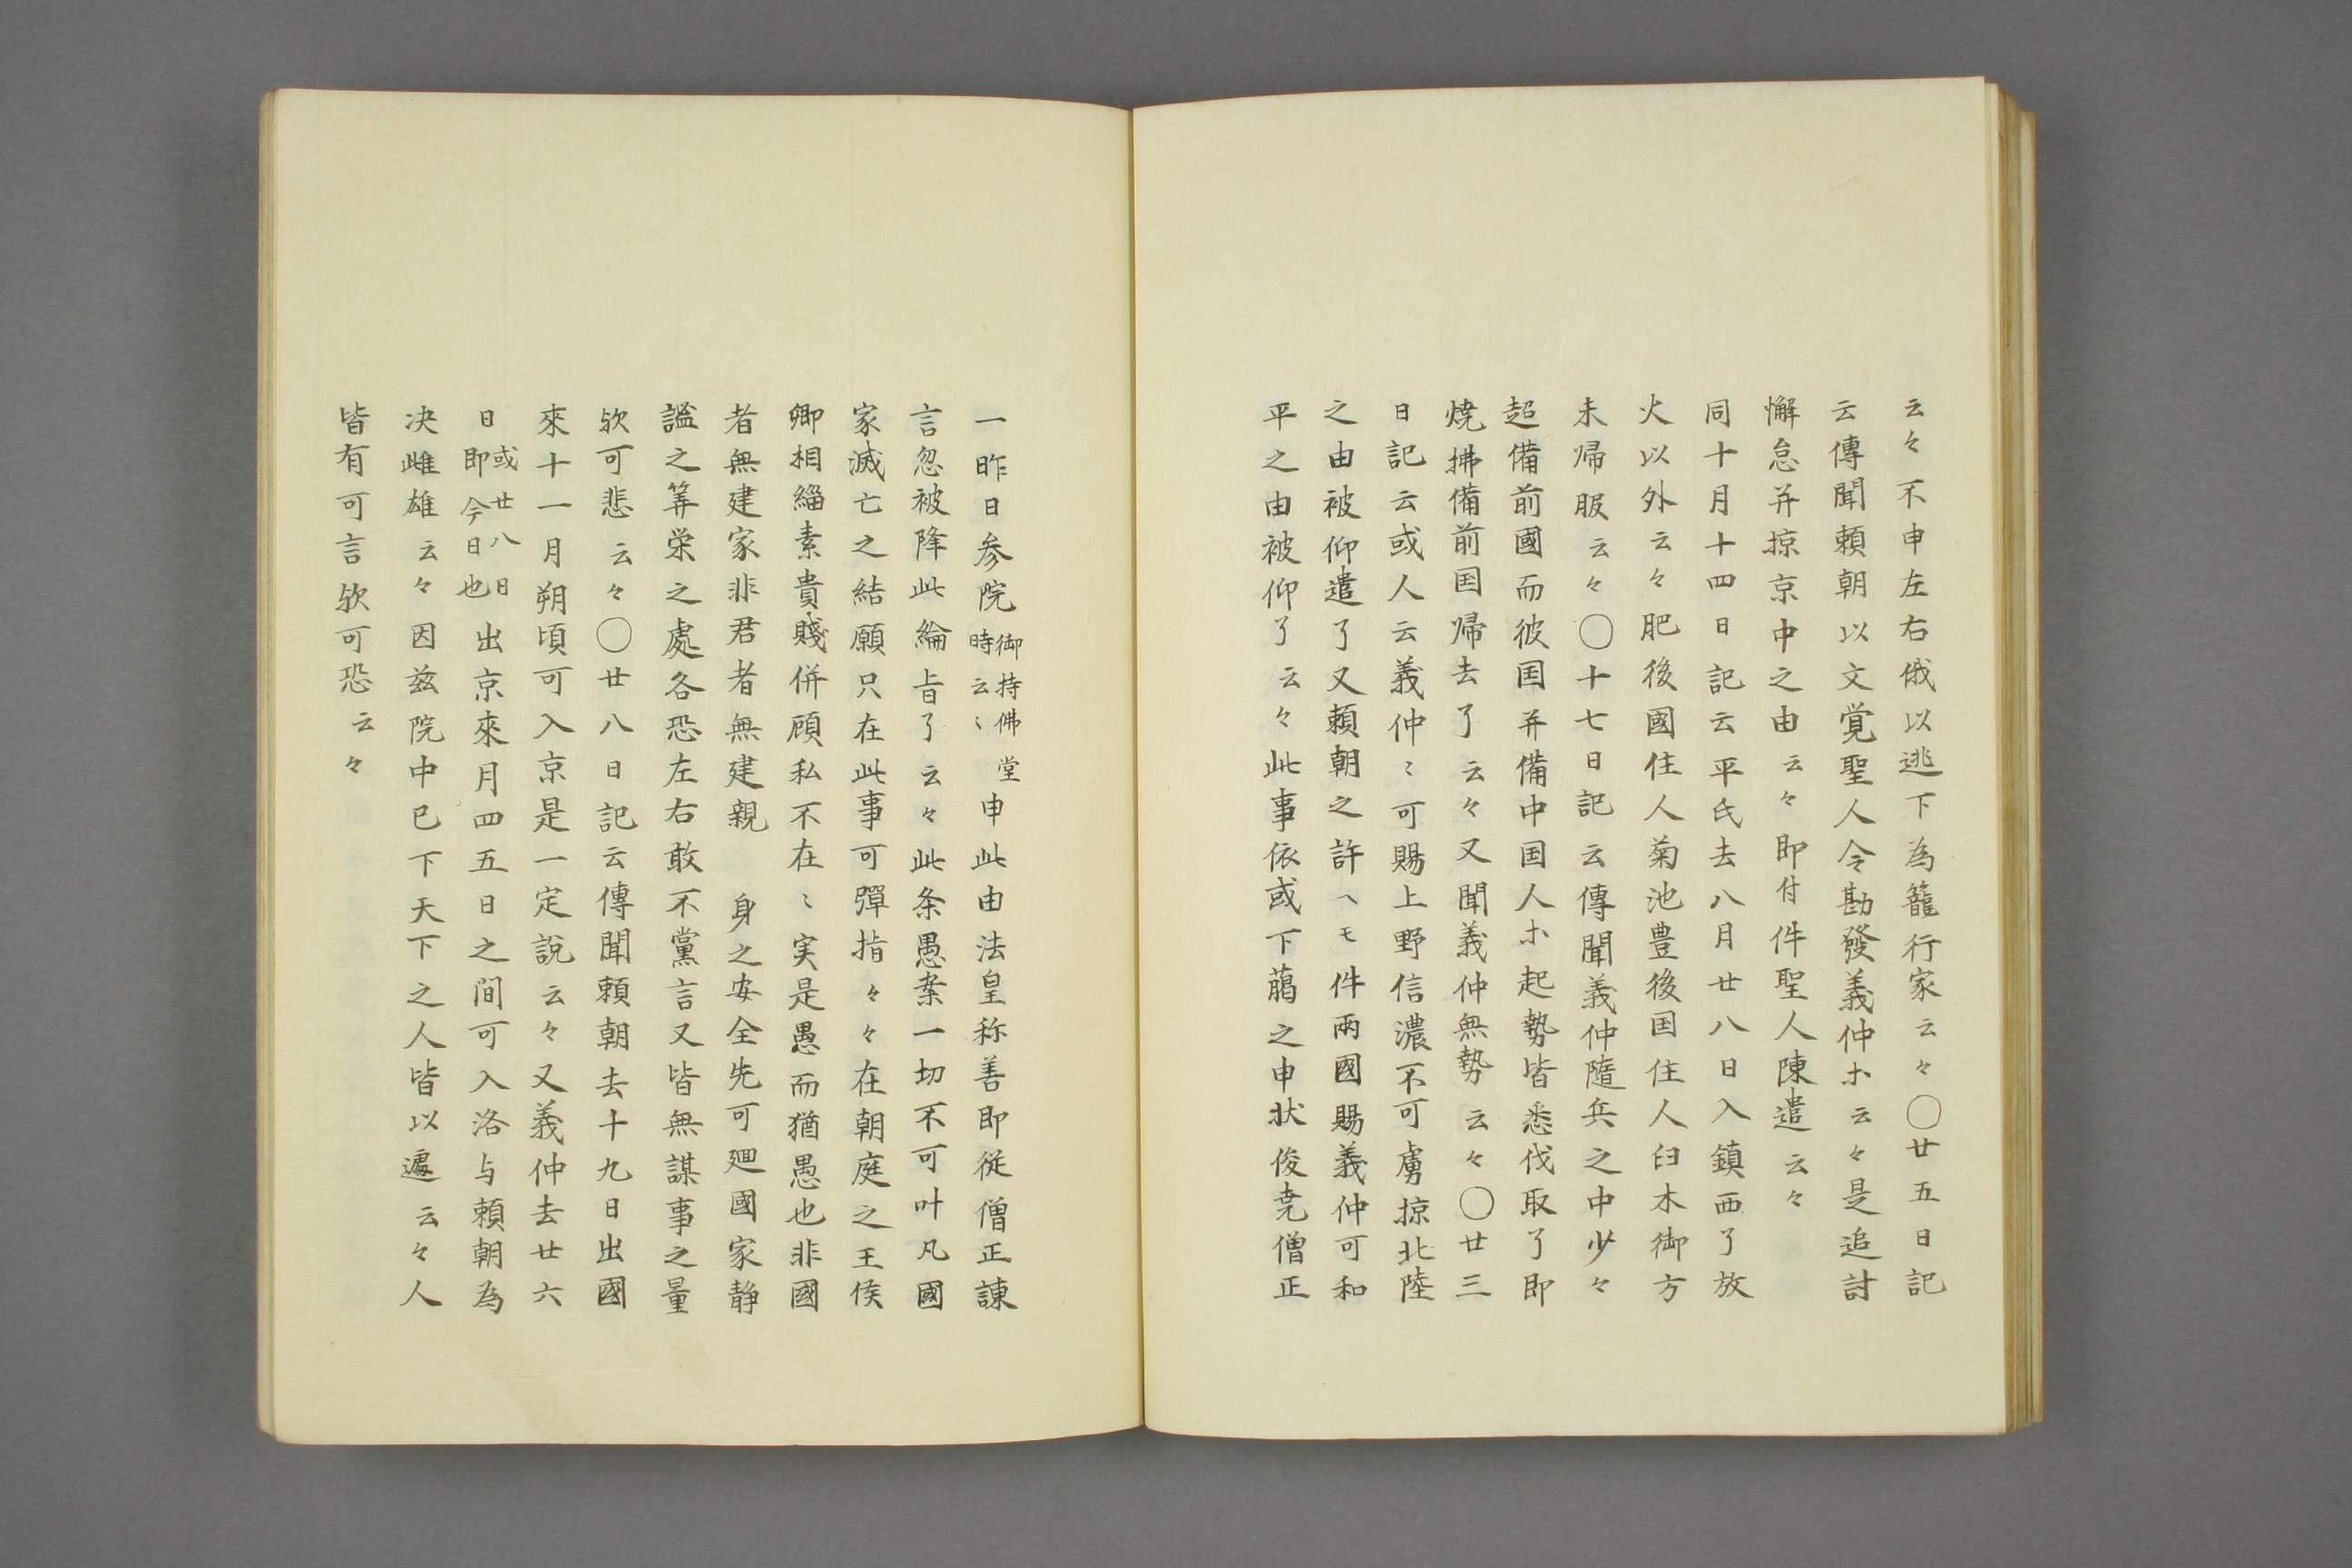 云々不申左右俄以逃下為籠行家云々〇廿五日記
云傳聞頼朝以文覚聖人令勘發義仲ホ云々是追討
懈怠并掠京中之由云々即付件聖人陳遣云々
同十月十四日記云平氏去八月廿八日入鎮西了放
火以外云々肥後國住人菊池豊後国住人臼木御方
未帰服云々〇十七日記云傳聞義仲隨兵之中少々
超備前國而彼国并備中国人ホ起勢皆悉伐取了即
焼拂備前国帰去了云々又聞義仲無勢云々〇廿三
日記云或人云義仲〻可賜上野信濃不可虜掠北陸
之由被仰遣了又頼朝之許ヘモ件兩國賜義仲可和
平之由被仰了云々此事依或下﨟之申状俊尭僧正
一昨日参院御持佛堂時云〻申此由法皇称善即従僧正諫
言忽被降此綸旨了云々此条愚案一切不可叶凡國
家滅亡之結願只在此事可彈指々々在朝庭之王侯
卿相緇素貴賤併顧私不在〻実是愚而猶愚也非國
者無建家非君者無建親 身之安全先可廻國家静
謐之筭栄之處各恐左右敢不黨言又皆無謀事之量
欤可悲云々〇廿八日記云傳聞頼朝去十九日出國
來十一月朔頃可入京是一定説云々又義仲去廿六
日或廿八日即今日也出京來月四五日之間可入洛与頼朝為
决雌雄云々因兹院中已下天下之人皆以遽云々人
皆有可言欤可恐云々